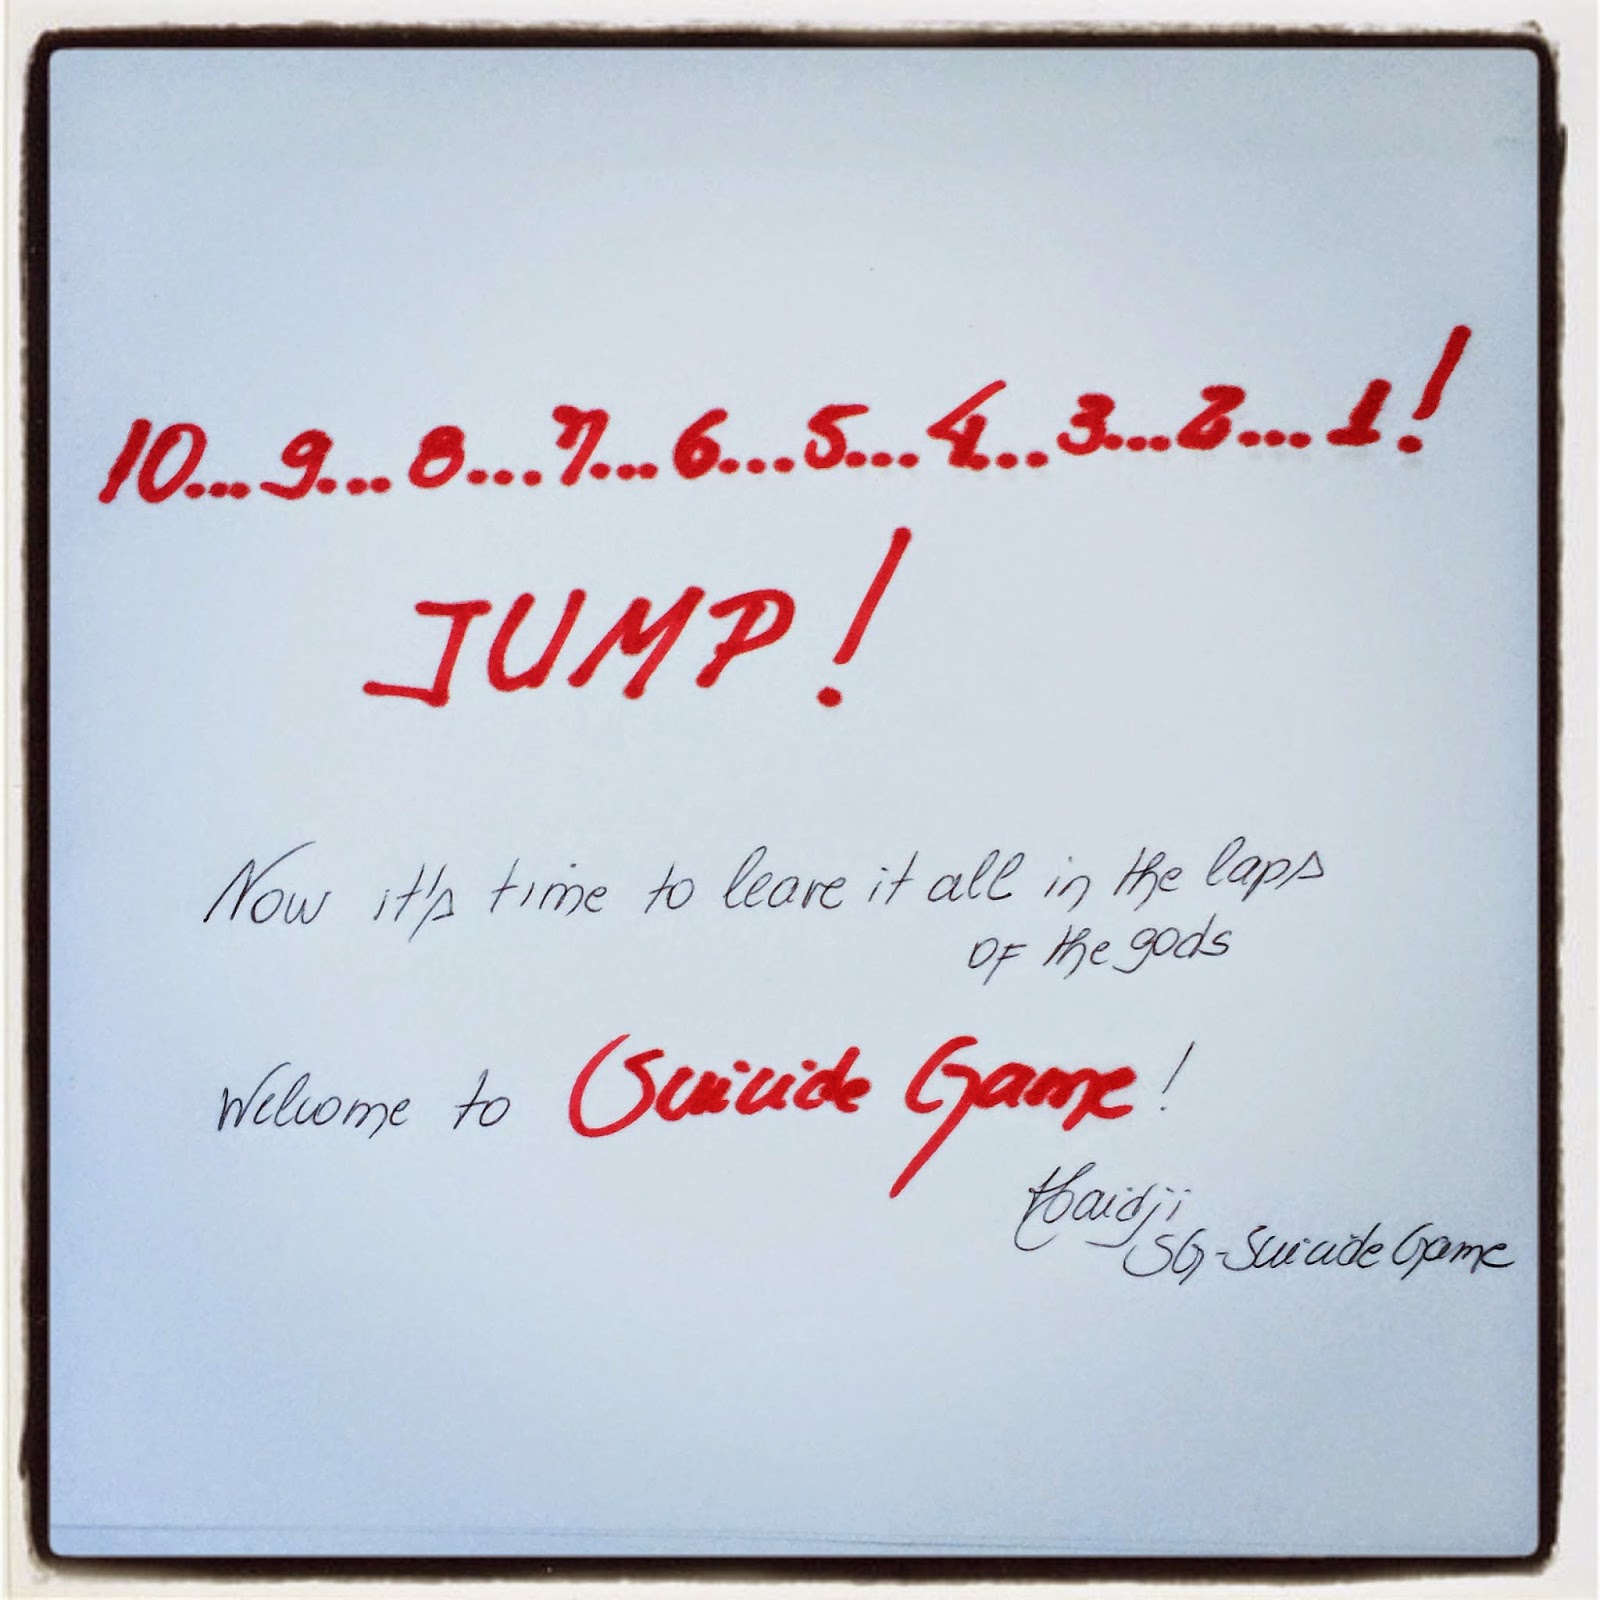 10...9...8...7...6...5...4..3...2...1!
JUMP!
Now it's time to leave it all in the laps
of the gods
Welcome to Suicide Game!
Haidji
SG-Suicide Game